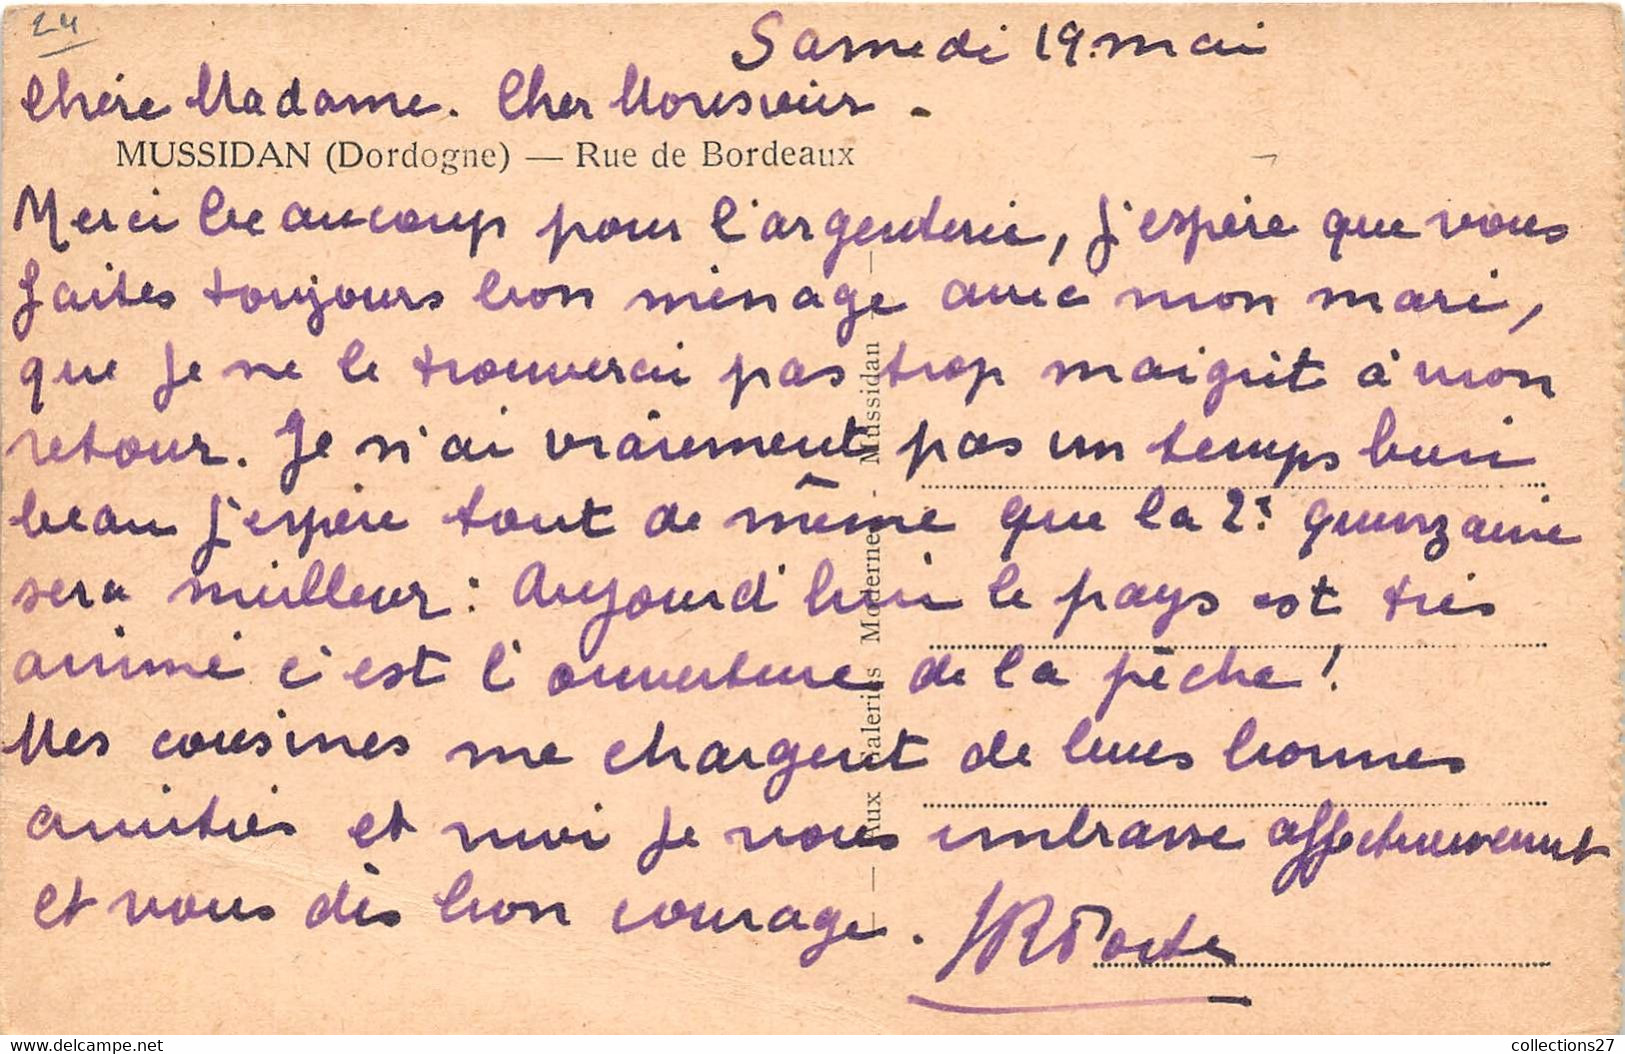 24
Samedi 19 mai
Chère Madame. Cher Monsieur -
MUSSIDAN (Dordogne) — Rue de Bordeaux
Merci beaucoup pour l'argenterie, j'espère que vous
faites toujours bon ménage avec mon mari,
que je ne le trouverai pas trop maigrit à mon
retour. Je n'ai vraiement pas un temps bien
beau j'espère tout de même que la 2e quinzaine
sera meilleur : Aujourd'hui le pays est très
animé c'est l'ouverture de la pêche !
Mes cousines me chargent de leurs bonnes
amitiés et moi je vous embrasse affectueusement
et vous dis bon courage.
— Aux Galeries Modernes - Mussidan —
collections27